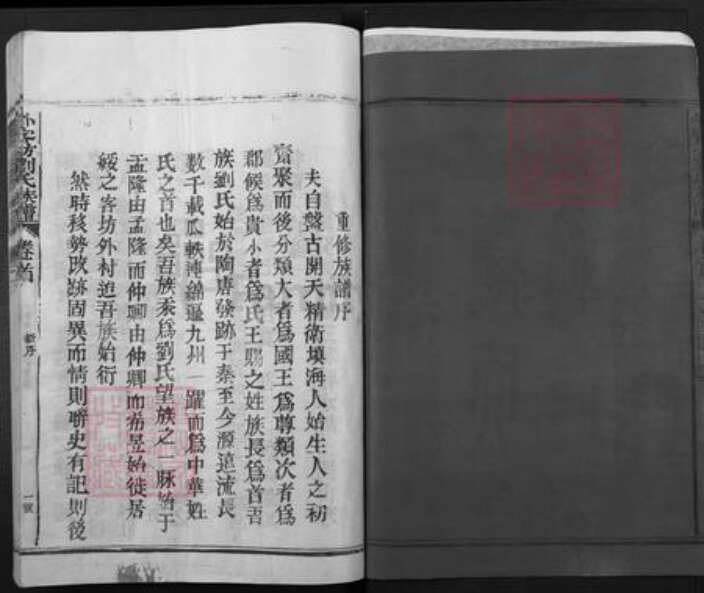 重修族譜序
夫自盤古開天精衛填海人始生人之初
齊聚而後分類大者爲國王爲尊類次者爲
郡候爲貴小者爲氏王賜之姓族長爲首吾
族劉氏始於陶唐發跡于秦至今源遠流長
数千載瓜軼連綿遍九州一躍而爲中華姓
氏之首也矣吾族忝爲劉氏望族之一脉始于
孟隆由孟隆而仲卿由仲卿而希昱始徙居
綏之客坊外村迫吾族始衍
然時移勢改跡固異而情則聯史有記則後
坊劉氏族譜
卷首
新序
一號